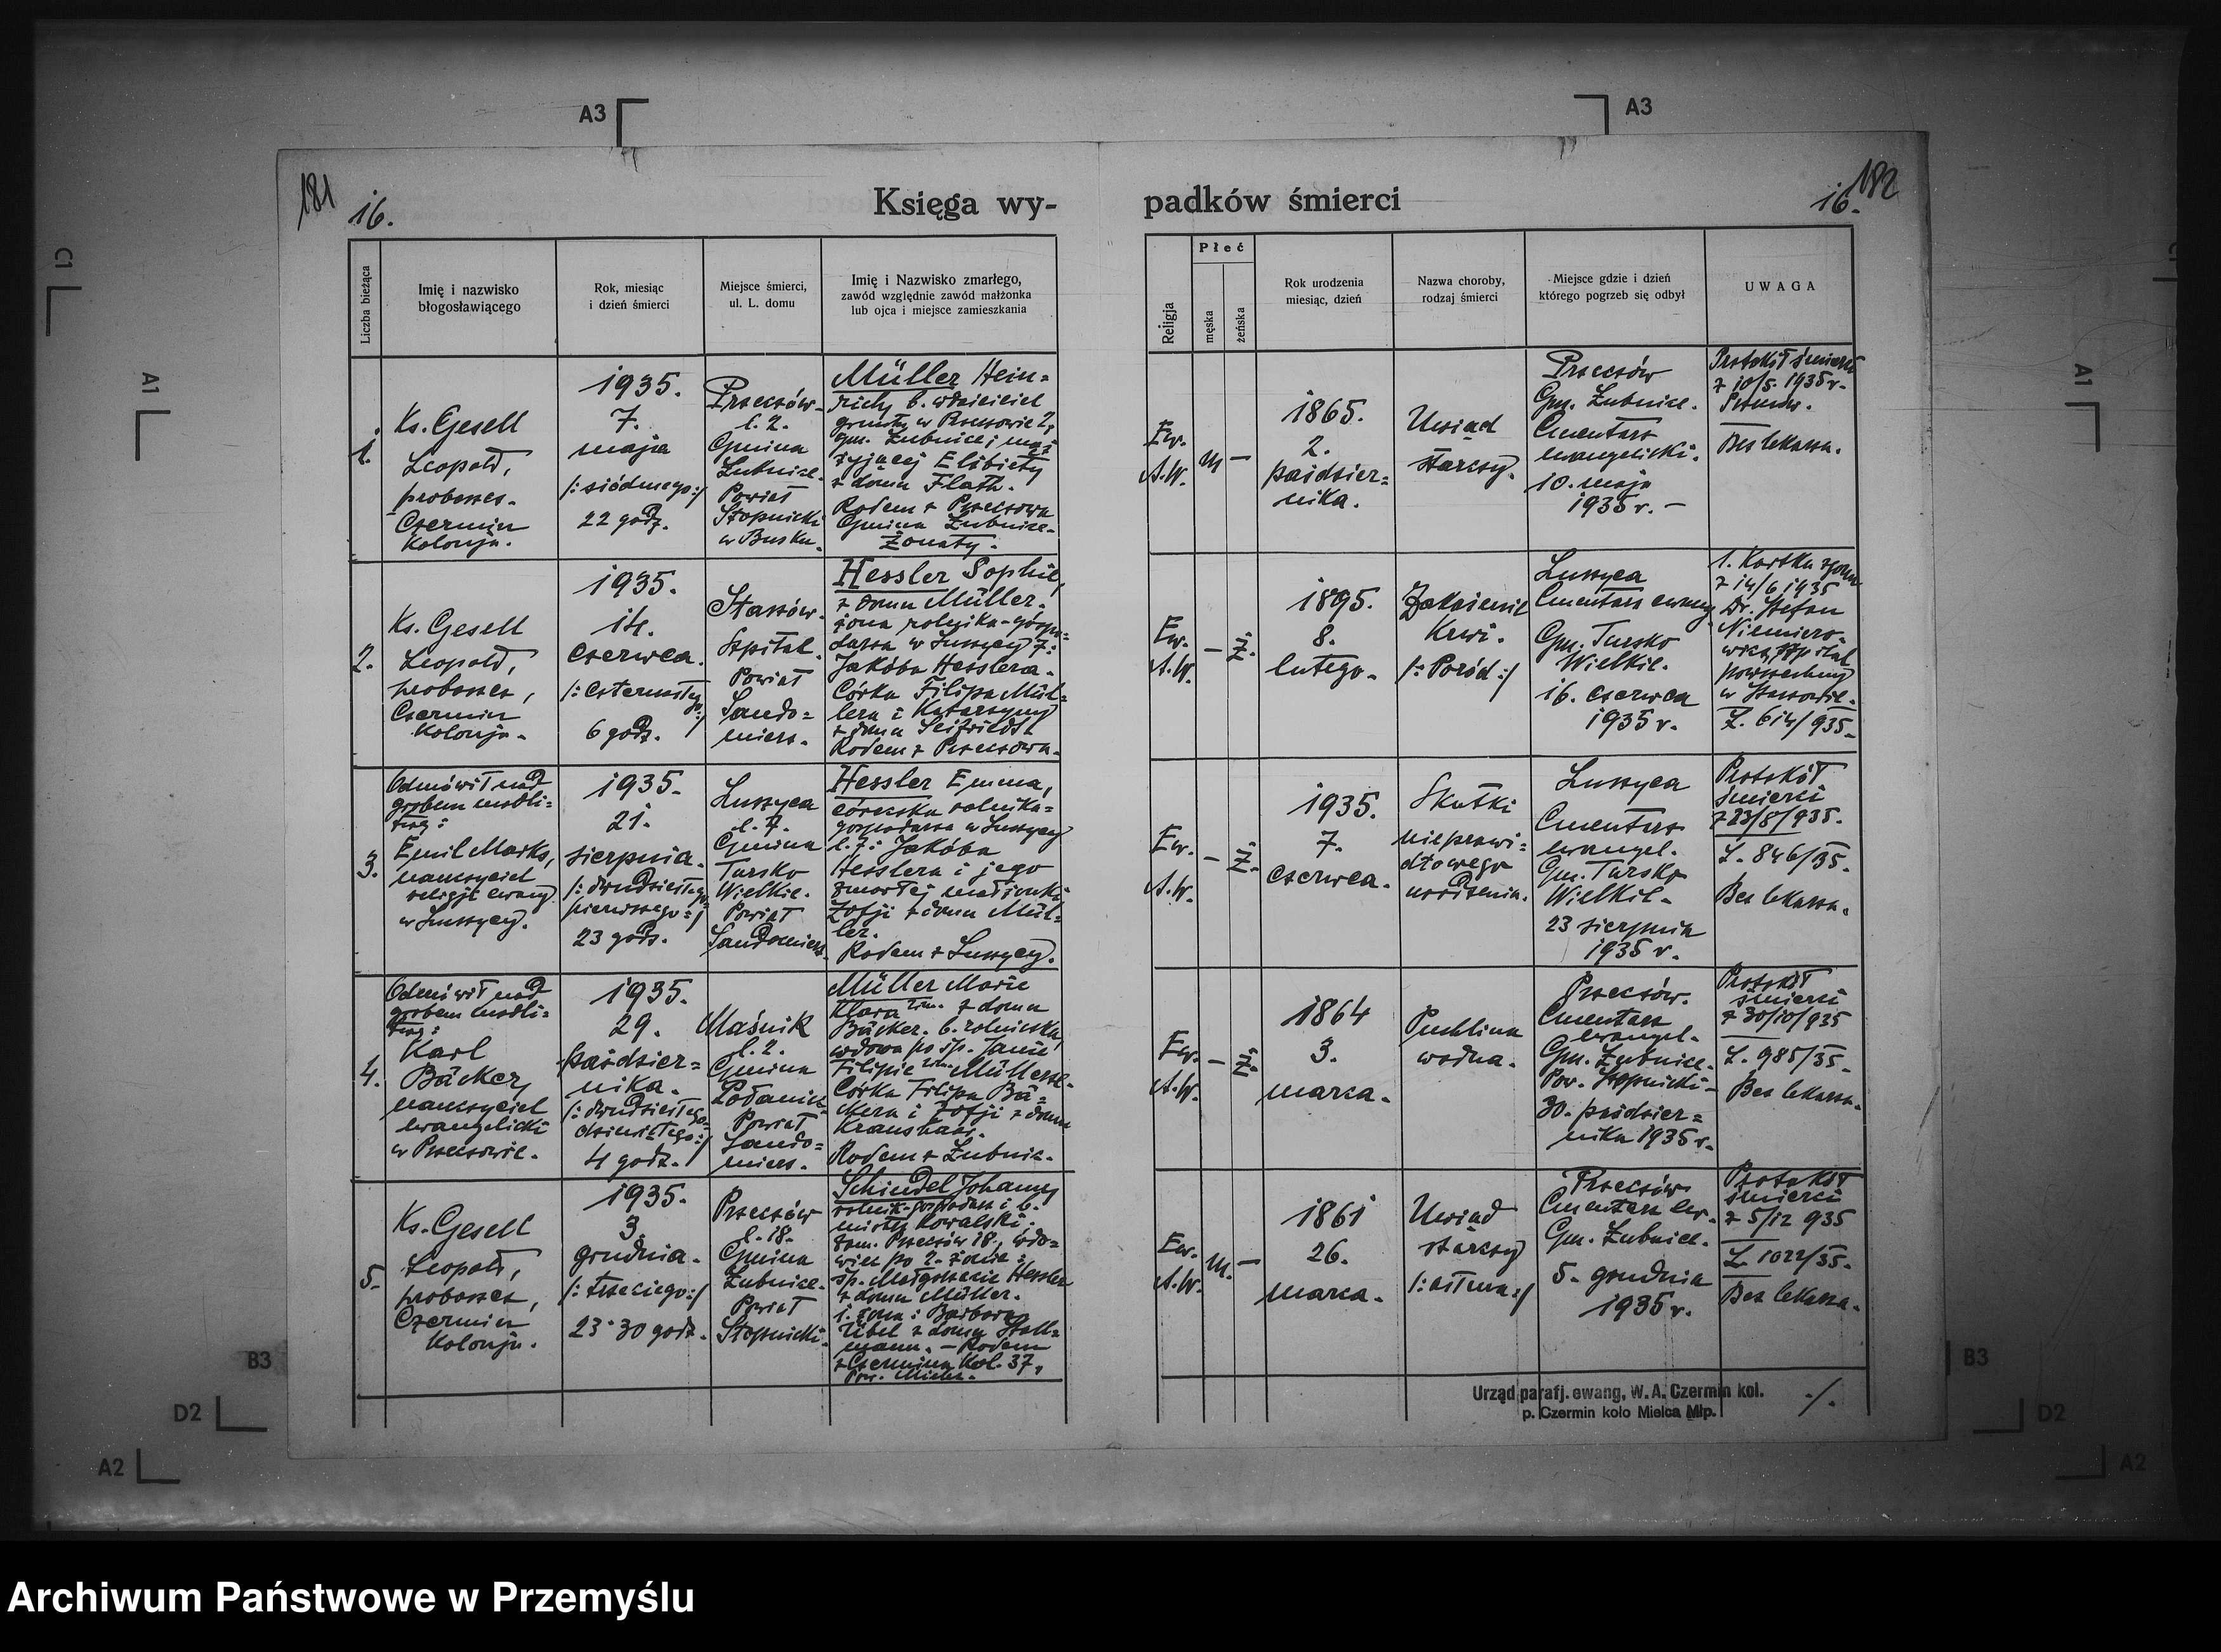 A3
A3
181
182
16.
16.
Księga wy-
padków śmierci
Liczba bieżąca
Imię i nazwisko
błogosławiącego
Rok, miesiąc
i dzień śmierci
Miejsce śmierci,
ul. L. domu
Imię i Nazwisko zmarłego,
zawód względnie zawód małżonka
lub ojca i miejsce zamieszkania
Religja
Płeć
męska
żeńska
Rok urodzenia
miesiąc, dzień
Nazwa choroby,
rodzaj śmierci
Miejsce gdzie i dzień
którego pogrzeb się odbył
UWAGA
1.
Ks. Gesell
Leopold,
proboszcz.
Czermin
Kolonja.
1935.
7.
maja
/:siódmego:/
22 godz.
Przeczów.
l. 2.
Gmina
Łubnice.
Powiat
Stopnicki
w Busku.
Müller Hein=
rich, b. właściciel
gruntu w Przeczowie 2,
gm. Łubnice; mąż
żyjącej Elżbiety
z domu Flath.
Rodem z Przeczowa
Gmina Łubnice.
Żonaty.
Ew.
A.W.
m
–
1865.
2.
paździer=
nika.
Uwiąd
starczy.
Przeczów
Gm. Łubnice.
Cmentarz
ewangelicki.
10. maja
1935 r. –
Protokół śmierci
z 10/5. 1935 r.
Przeczów.
Bez lekarza.
2.
Ks. Gesell
Leopold,
proboszcz,
Czermin
Kolonja.
1935.
14.
czerwca.
/:czternastego:/
6 godz.
Staszów.
Szpital.
Powiat
Sando=
mierz.
Hessler Sophie,
z domu Müller.
żona rolnika-gospo=
darza w Łuszycy 7:
Jakóba Hesslera.
Córka Filipa Mül=
lera i Katarzyny
z domu Seifriedt
Rodem z Przeczowa.
Ew.
A.W.
–
ż.
1895.
8.
lutego.
Zakażenie
Krwi.
/:Poród:/
Łuszyca
Cmentarz ewang.
Gm. Tursko
Wielkie.
16. czerwca
1935 r.
1. Kartka zgonu
z 14/6 1935
Dr. Stefan
Niemiro-
wicz, szpital
powszechny
w Staszowie.
L. 614/935.
3.
Odmówił nad
grobem modli=
twę:
Emil Marks,
nauczyciel
religji ewang.
w Łuszycy.
1935.
21.
sierpnia.
/:dwudziestego
pierwszego:/
23 godz.
Łuszyca
l. 7.
Gmina
Tursko
Wielkie.
Powiat
Sandomierz.
Hessler Emma,
córeczka rolnika=
gospodarza w Łuszycy
l. 7.: Jakóba
Hesslera i jego
zmarłej małżonki
Zofji z domu Mül=
ler.
Rodem z Łuszycy.
Ew.
A.W.
–
ż.
1935.
7.
czerwca.
Skutki
nieprawi=
dłowego
urodzenia.
Łuszyca
Cmentarz
ewangel.
Gm. Tursko
Wielkie.
23 sierpnia
1935 r.
Protokół
śmierci
z 23/8/935.
L. 846/35.
Bez lekarza.
4.
Odmówił nad
grobem modli=
twę:
Karl
Bäcker,
nauczyciel
ewangelicki
w Przeczowie.
1935.
29.
paździer=
nika.
/:dwudziestego
dziewiątego:/
4 godz.
Maśnik
l. 2.
Gmina
Powiat
Sando=
mierz.
Müller Marie
Klara zm. z domu
Bäcker. b. rolniczka,
wdowa po śp. Janie
Filipie zm. Müllerze.
Córka Filipa Bä=
ckera i Zofji z domu
Kraushaar.
Rodem z Łubnic.
Ew.
A.W.
–
ż.
1864
3.
marca.
Puchlina
wodna.
Przeczów.
Cmentarz
ewangel.
Gm. Łubnice.
Pow. Stopnicki.
30. paździer=
nika 1935 r.
Protokół
śmierci
z 30/10/935
L. 985/35.
Bez lekarza.
5.
Ks. Gesell
Leopold,
proboszcz,
Czermin
Kolonja.
1935.
3.
grudnia.
/:trzeciego:/
23·30 godz.
Przeczów
l. 18.
Gmina
Łubnice.
Powiat
Stopnicki.
Schindel Johann,
rolnik-gospodarz i b.
majster kowalski.
zam. Przeczów 18, wdo=
wiec po 2. żonie:
śp. Małgorzacie Hessler
z domu Müller.
1. żona: Barbara
Übel z domu Stall=
mann. – Rodem
z Czermina Kol. 37,
Pow. Mielec.
Ew.
A.W.
m.
–
1861
26.
marca.
Uwiąd
starczy
/:astma:/
Przeczów
Cmentarz ew.
Gm. Łubnice.
5. grudnia
1935 r.
Protokół
śmierci
z 5/12 935
L. 1022/35.
Bez lekarza.
Urząd parafj. ewang. W. A. Czermin kol.
p. Czermin koło Mielca Młp.
./.
C1
A1
A1
B3
B3
D2
D2
A2
A2
Archiwum Państwowe w Przemyślu